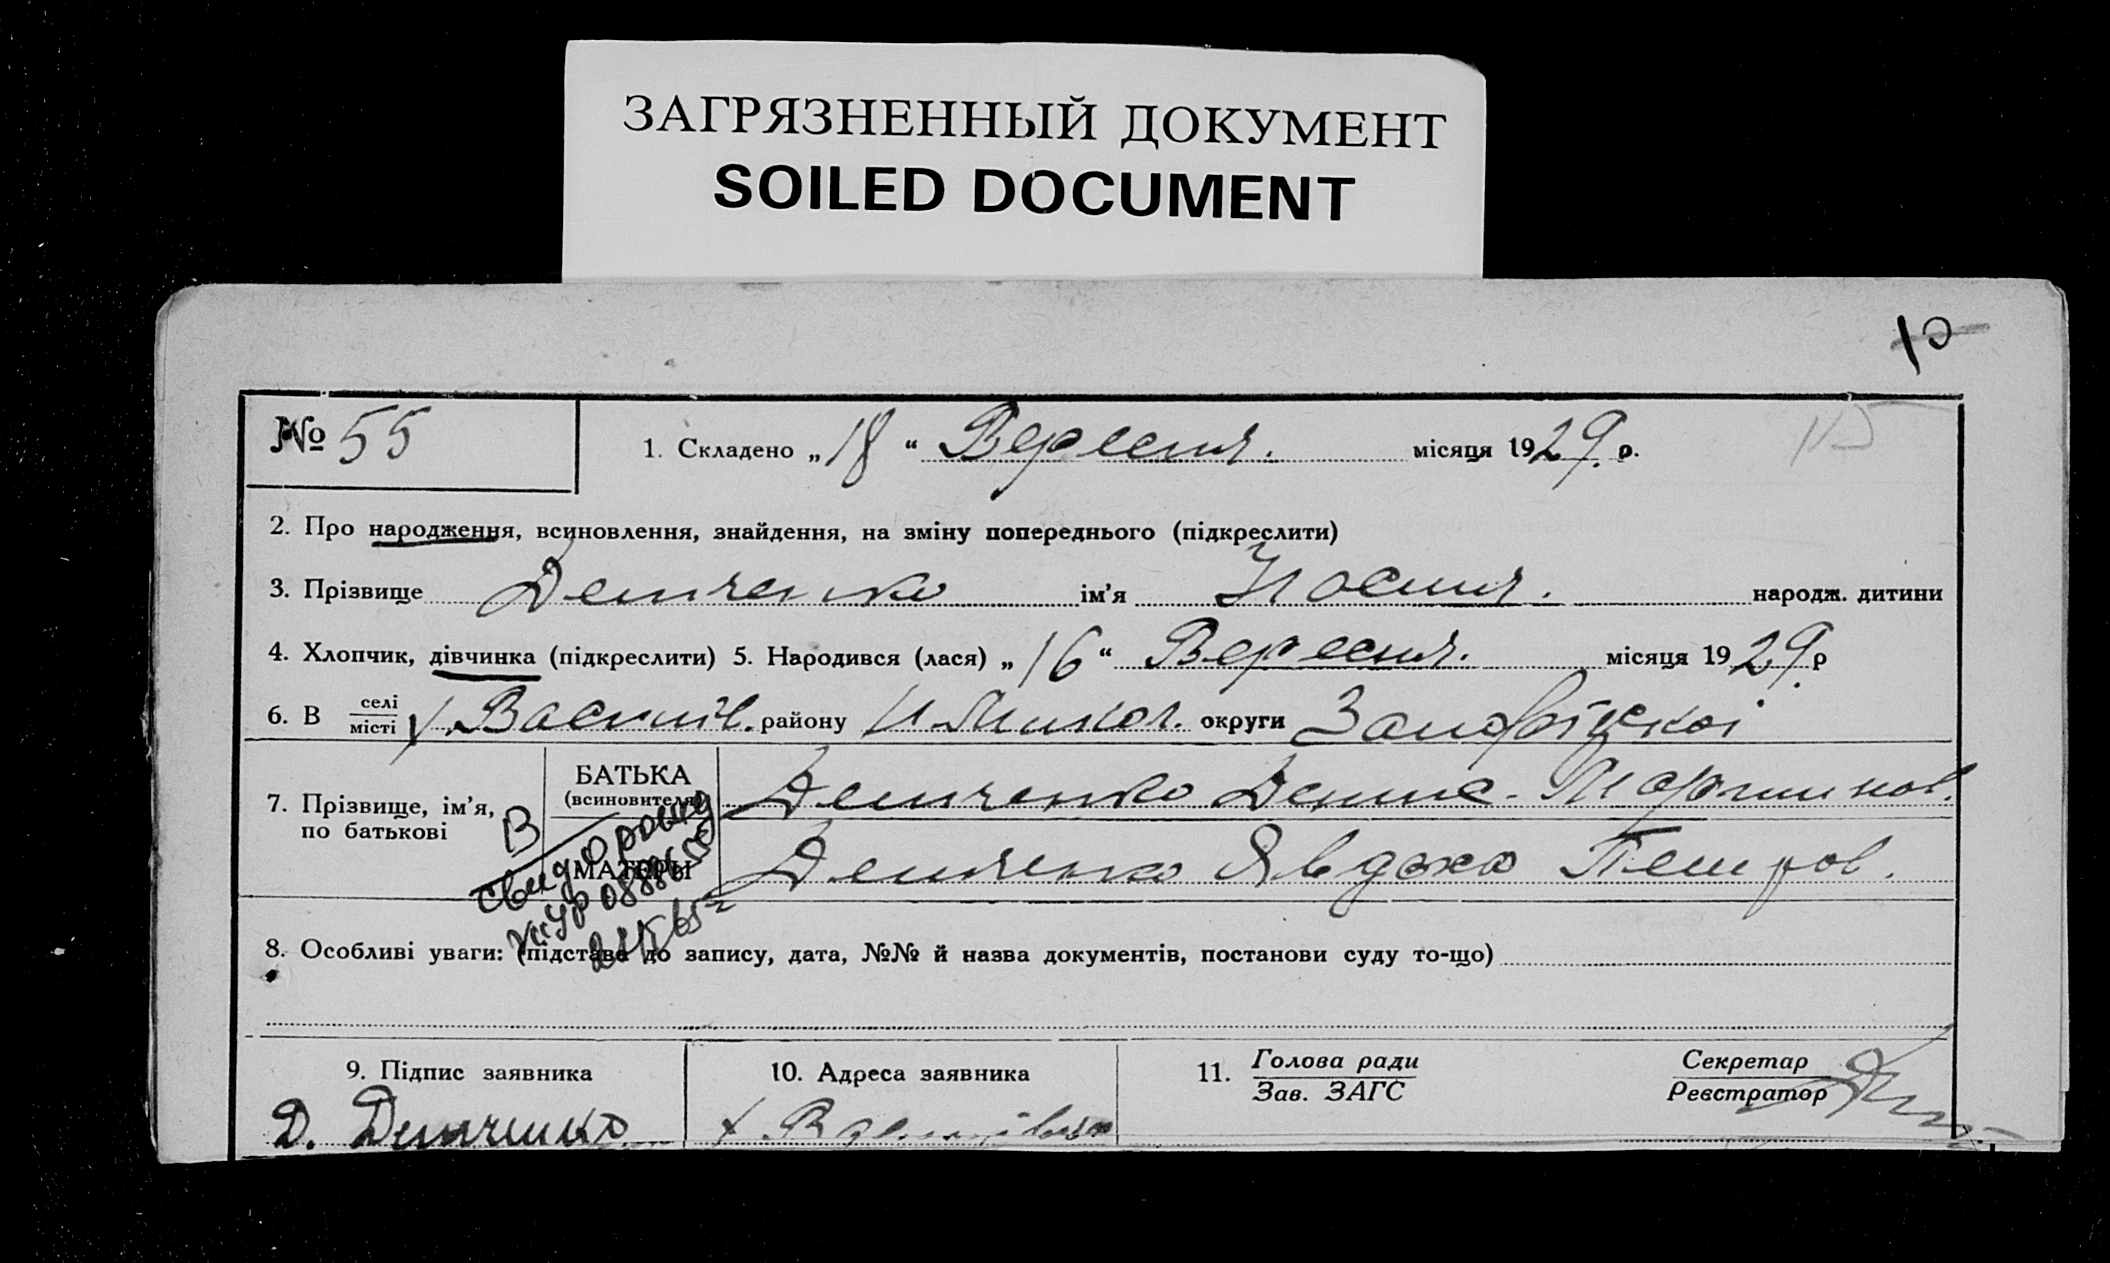 ЗАГРЯЗНЕННЫЙ ДОКУМЕНТ
SOILED DOCUMENT
10
115
№ 55
1. Складено „18“ Вересня. місяця 1929. р.
2. Про народження, всиновлення, знайдення, на зміну попереднього (підкреслити)
3. Прізвище Демченко ім’я народж. дитини
4. Хлопчик, дівчинка (підкреслити) 5. Народився (лася) „16“ Вересня. місяця 1929. р
6. В селі місті району округи Запорізької
7. Прізвище, ім’я, по батькові
БАТЬКА (всиновителя) Демченко Денис
МАТЕРЫ Демченко Явдоха Петров.
В
8. Особливі уваги: (підстава до запису, дата, №№ й назва документів, постанови суду то-що)
9. Підпис заявника
10. Адреса заявника
11. Голова ради
Зав. ЗАГС
Секретар
Реєстратор
Д. Демченко